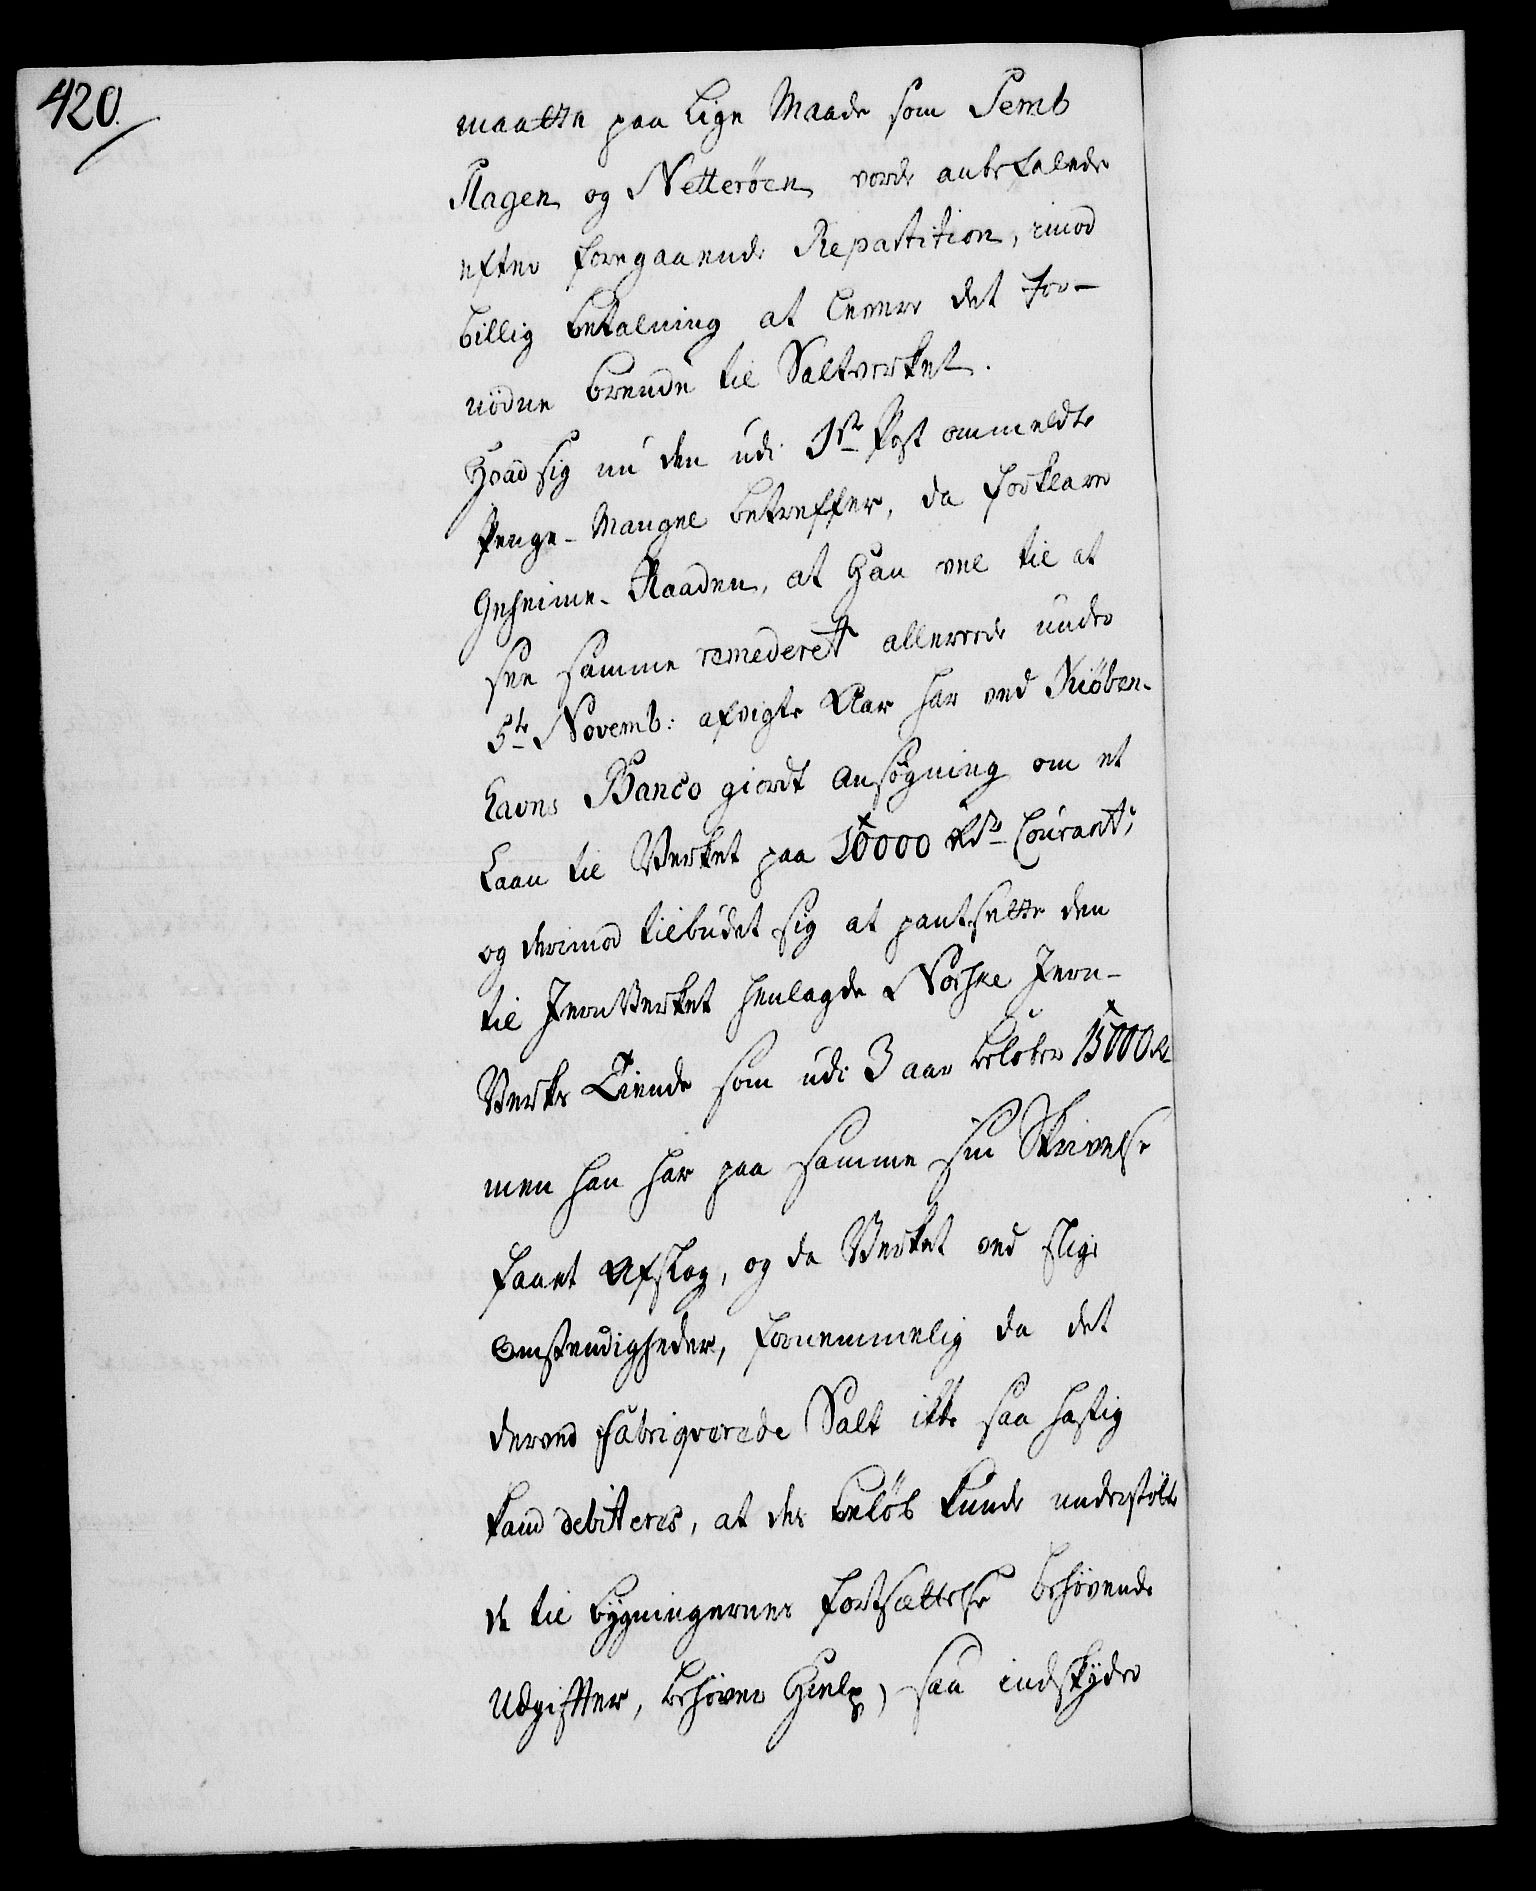 420.
maatte paa lige Maade som Semb
Slagen og Netteröen vorde anbefalede
efter foregaaende Repartition, imod
billig betalning at levere det for-
nödne brende til Saltverket.
Hvad sig nu den udi 1ste Post ommeldte
Penge-Mangel betreffer, da forklare
Geheime-Raaden, at Han vel til at
see samme remederet allerede under
5te Novemb: afvigte Aar har ved Kiöben-
havns Banco giordt Ansögning om et
Laan til Verket paa 10000 Rdr Courant,
og derimod tilbudet sig at pantsette den
til JernVerket henlagde Norske Jern-
Verks Tiende som udi 3 aar belöber 15000 Rd
men han har paa samme sin Skrivelse
faaet Afslag, og da Verket ved slige
Omstendigheder, fornemmelig da det
derved fabriqverede Salt ikke saa hastig
kand debitteres, at des Belöb kunde understötte
de til bygningernes fortsættelse behövende
Udgiftter, behöver Hielp, saa indskyder